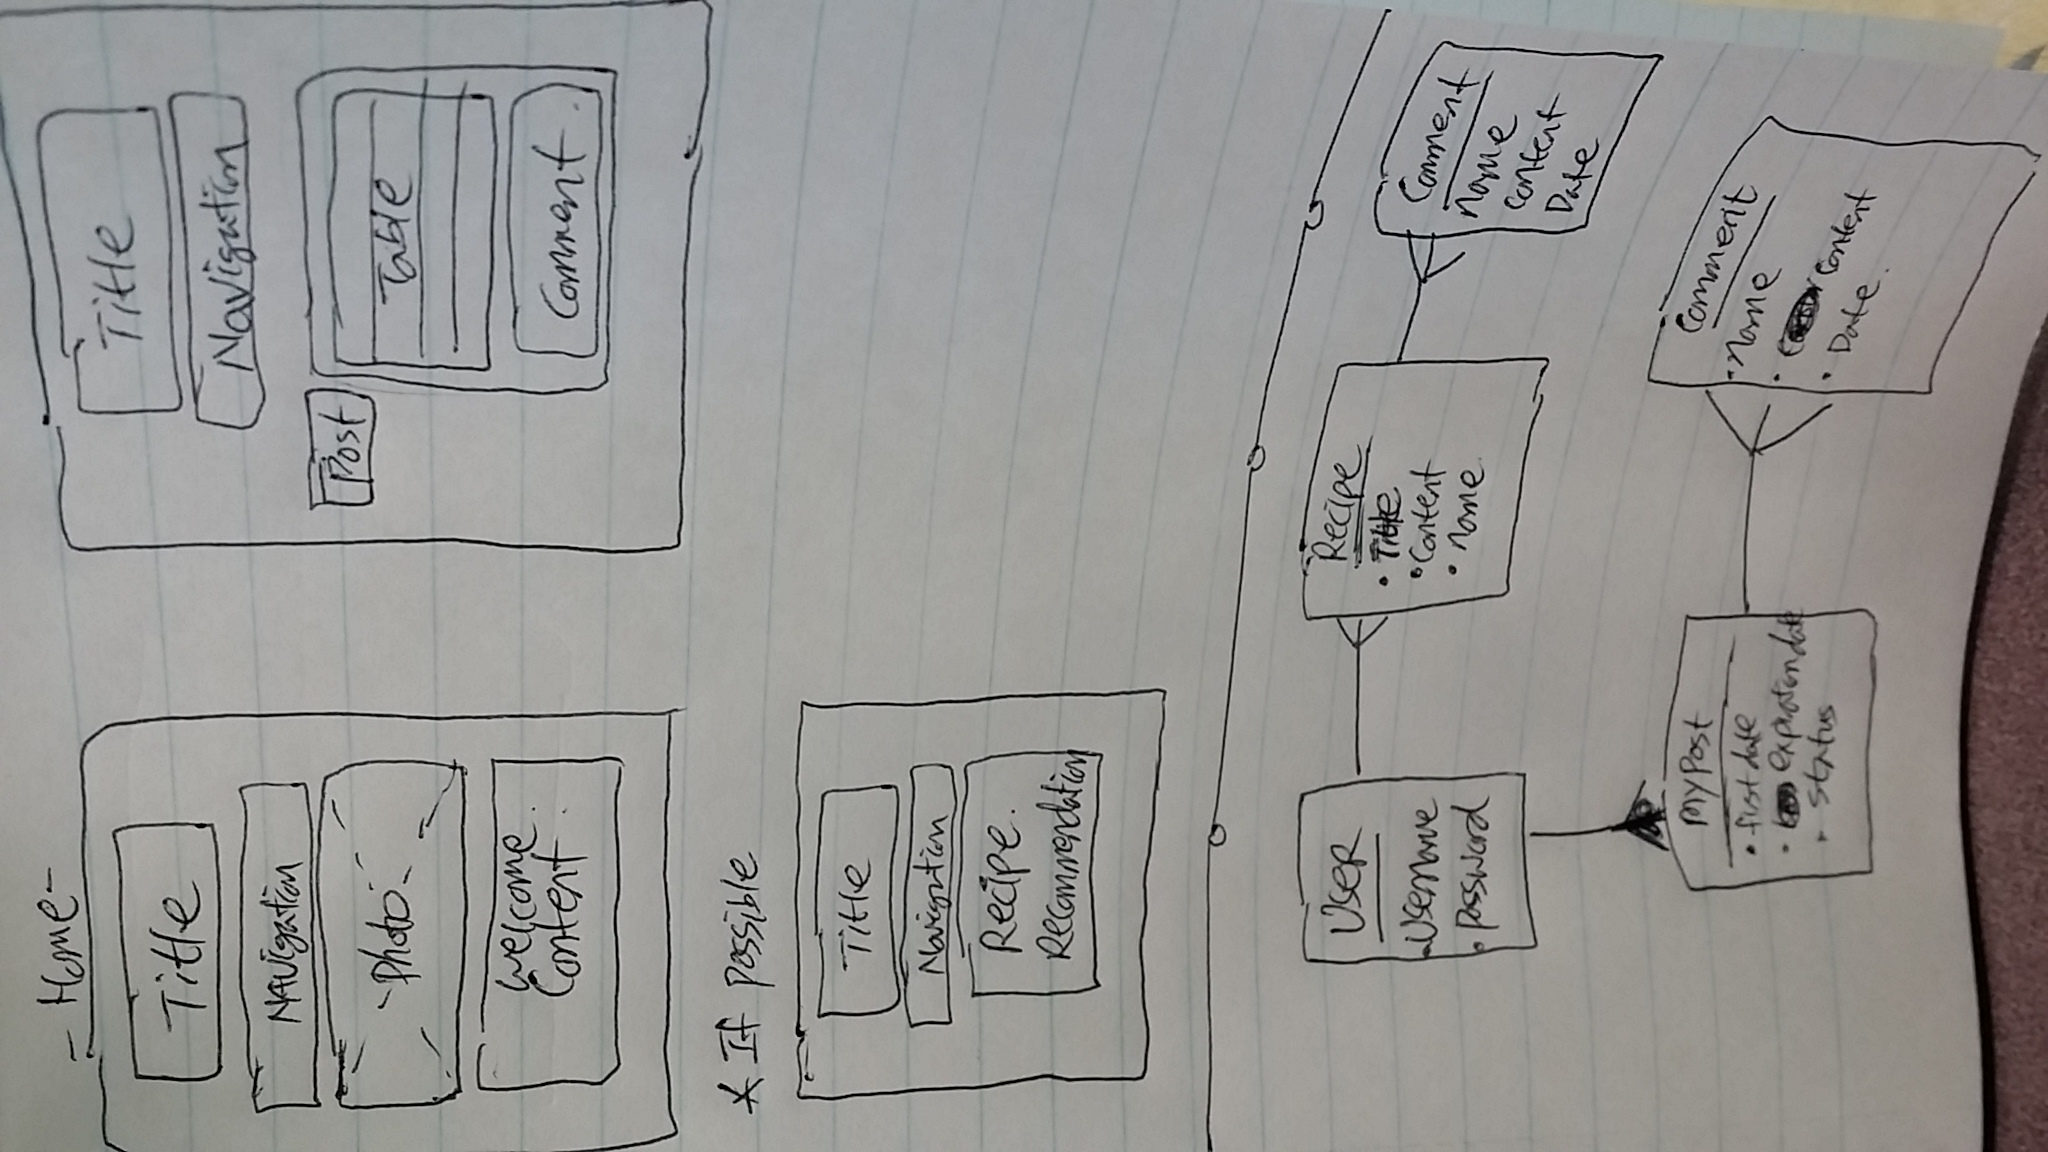 - Home -
Title
Navigation
Photo
Welcome.
Content
Title
Navigation
Post
Table
Comment.
* If possible
Title
Navigation
Recipe.
Recommendation
User
• Username
• password
Recipe
• Title
• Content
• name.
Comment
name
content
Date
MyPost
• first date
• expiration date
• status
Comment
• name
• content
• Date.